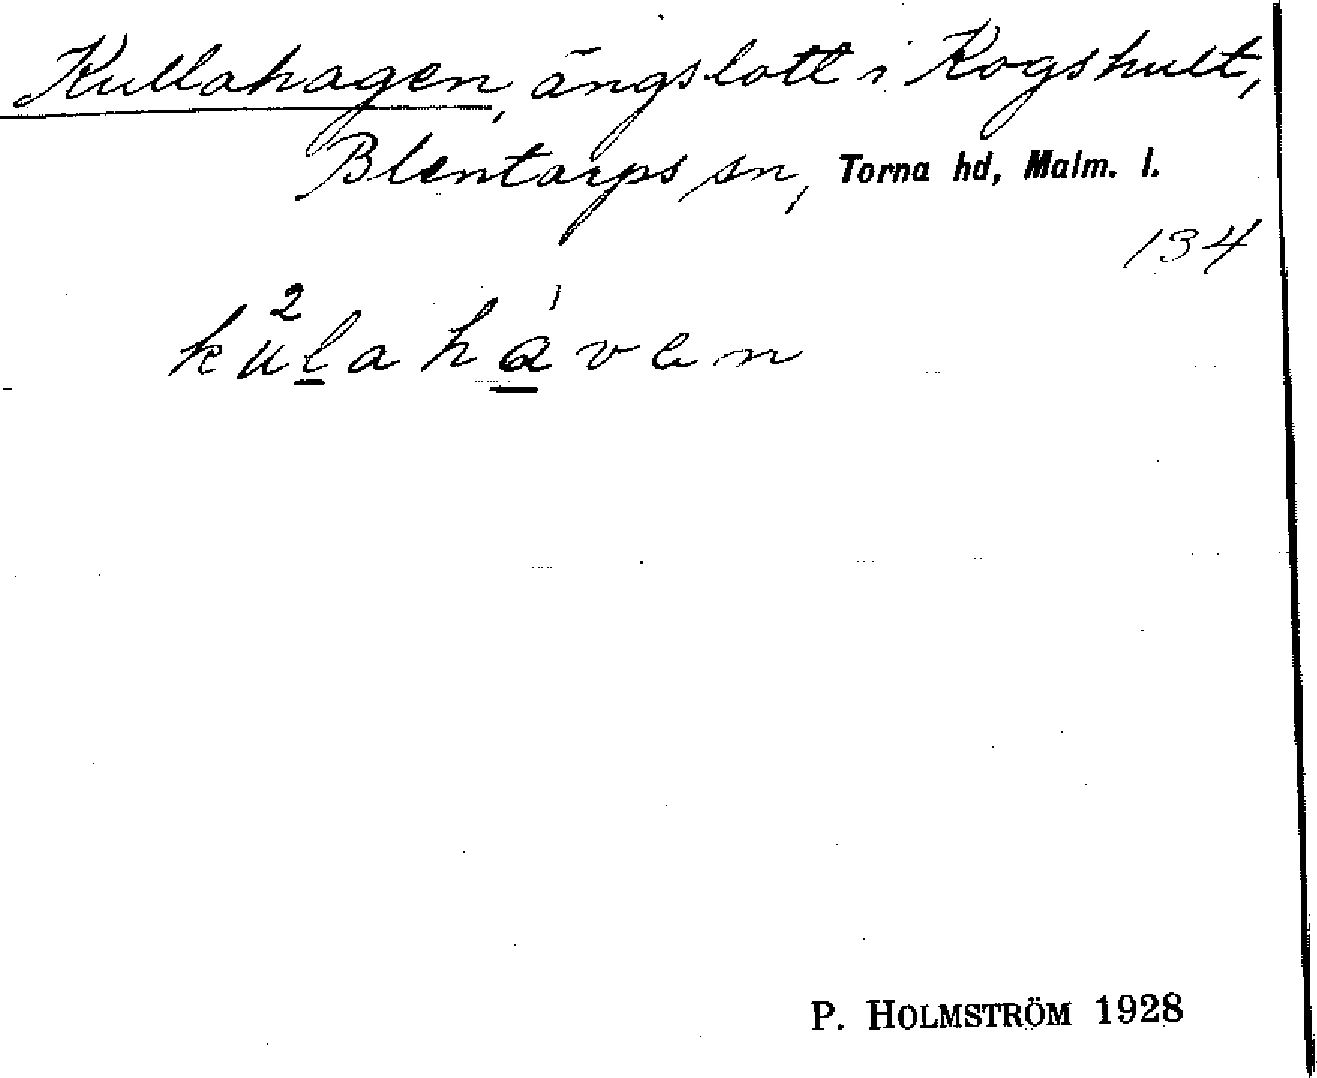 Kullahagen, ängslott i Kogshult,
Blentarps sn, Torna hd, Malm. l.
134
ku²laha¹ven
P. HOLMSTRÖM 1928